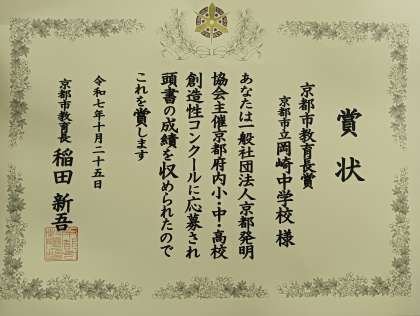 賞状
京都市教育長賞
京都市立岡崎中学校 様
あなたは一般社団法人京都発明
協会主催京都府内小・中・高校
創造性コンクールに応募され
頭書の成績を収められたので
これを賞します
令和七年十月二十五日
京都市教育長 稲田 新吾